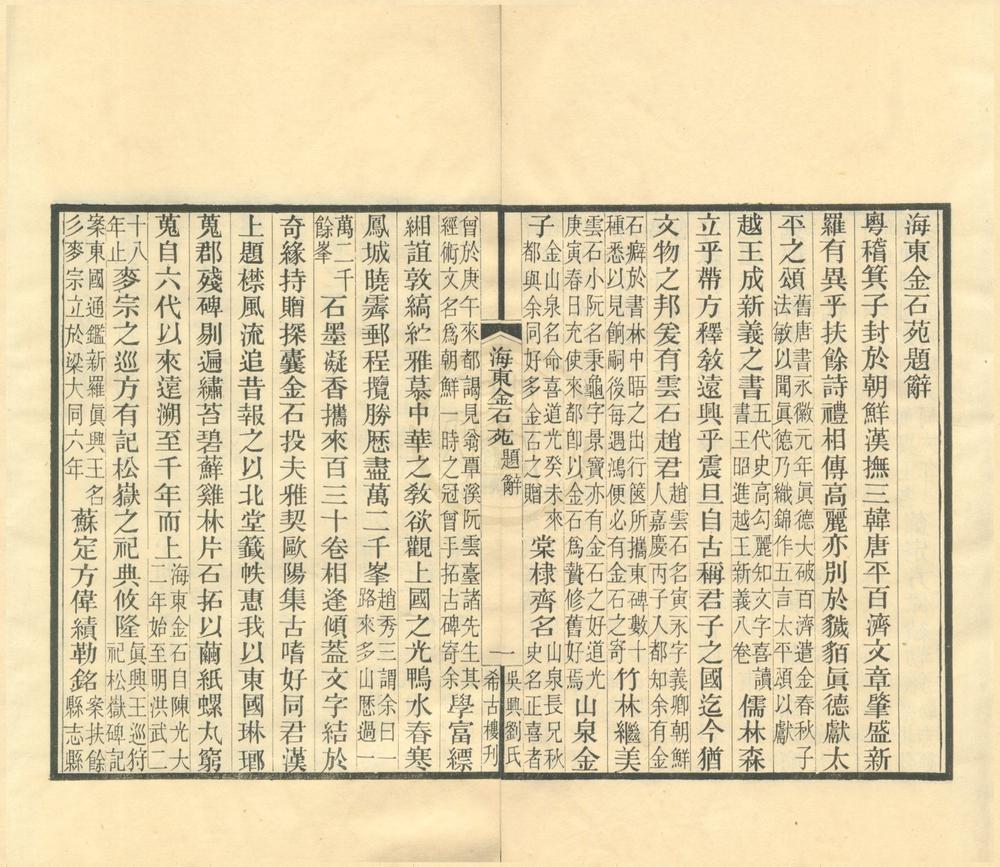 海東金石苑題辭
粵稽箕子封於朝鮮漢撫三韓唐平百濟文章肇盛新
羅有異乎扶餘詩禮相傳高麗亦別於獩貊眞德獻太
平之頌舊唐書永徽元年眞德大破百濟遣金春秋子法敏以聞眞德乃織錦作五言太平頌以獻
越王成新義之書五代史高勾麗知文字喜讀書王昭進越王新義八卷儒林森
立乎帶方釋敎遠興乎震旦自古稱君子之國迄今猶
文物之邦爰有雲石趙君趙雲石名寅永字義卿朝鮮人嘉慶丙子人都知余有金
石癖於書林中晤之出行篋所攜東碑數十種悉以見餉嗣後每遇鴻便必有金石之寄竹林繼美
雲石小阮名秉龜字景寶亦有金石之好道光庚寅春日充使來都卽以金石爲贄修舊好焉山泉金
子金山泉名命喜道光癸未來都與余同好多金石之贈棠棣齊名山泉長兄秋史名正喜者
海東金石苑 題辭 一 吳興劉氏希古樓刊
曾於庚午來都謁見翁覃溪阮雲臺諸先生其經術文名爲朝鮮一時之冠曾手拓古碑寄余學富縹
緗誼敦縞紵雅慕中華之敎欲觀上國之光鴨水春寒
鳳城曉霽郵程攬勝歷盡萬二千峯趙秀三謂余曰一路來多山歷過一
萬二千餘峯石墨凝香攜來百三十卷相逢傾葢文字結於
奇緣持贈探囊金石投夫雅契歐陽集古嗜好同君漢
上題襟風流追昔報之以北堂籤帙惠我以東國琳瑯
蒐郡殘碑剔遍繡苔碧蘚雞林片石拓以繭紙螺丸窮
蒐自六代以來遠溯至千年而上海東金石自陳光大二年始至明洪武二
十八年止麥宗之巡方有記松嶽之祀典攸隆眞興王巡狩祀松嶽碑記
案東國通鑑新羅眞興王名彡麥宗立於梁大同六年蘇定方偉績勒銘案扶餘縣志縣